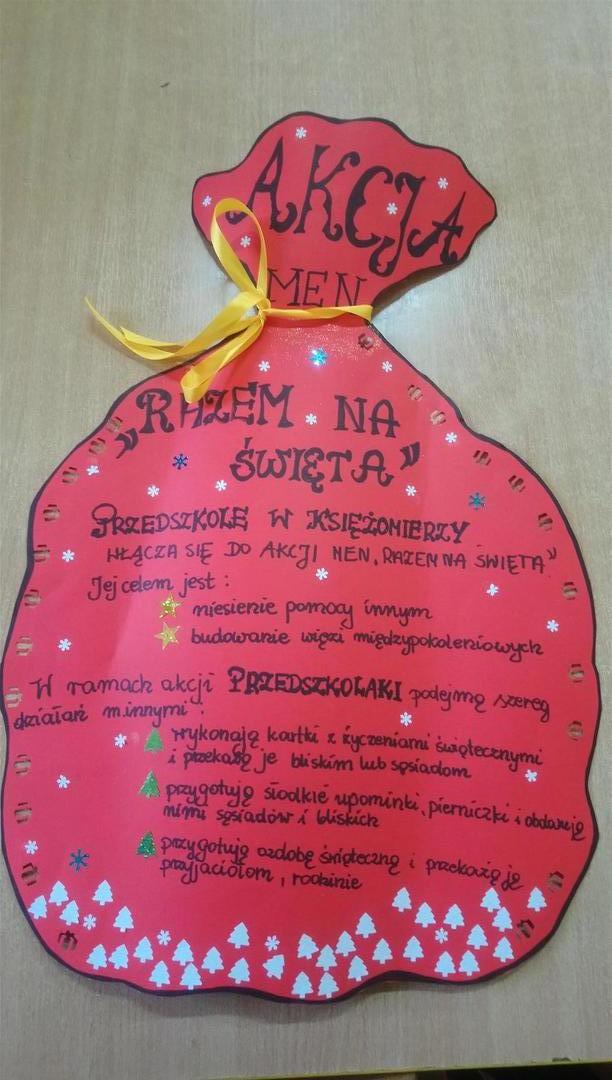 AKCJA
MEN
„RAZEM NA
ŚWIĘTA”
PRZEDSZKOLE W KSIĘŻOMIERZY
WŁĄCZA SIĘ DO AKCJI MEN „RAZEM NA ŚWIĘTA”
Jej celem jest :
niesienie pomocy innym
budowanie więzi międzypokoleniowych
W ramach akcji PRZEDSZKOLAKI podejmą szereg
działań m.innymi :
wykonają kartki z życzeniami świątecznymi
i przekażą je bliskim lub sąsiadom
przygotują słodkie upominki, pierniczki i obdarują
nimi sąsiadów i bliskich
przygotują ozdobę świąteczną i przekażą ją
przyjaciołom, rodzinie